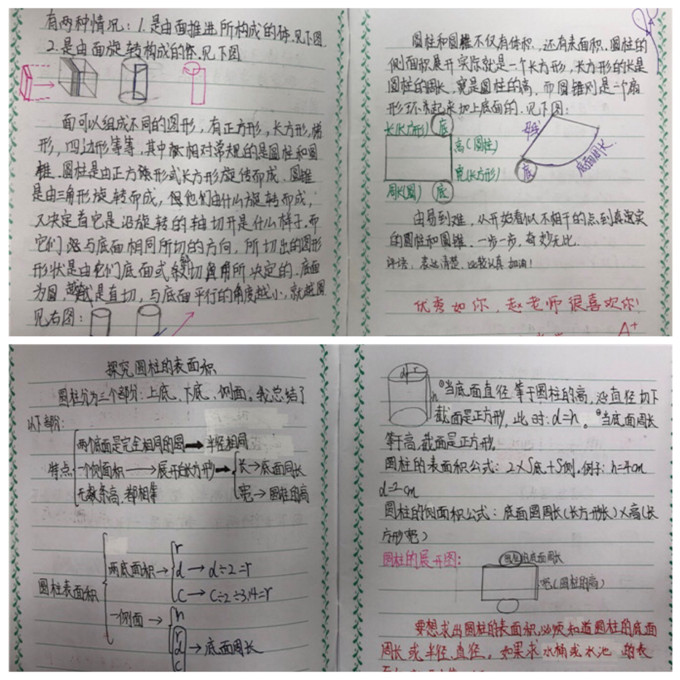 有两种情况：1.是由面推进所构成的体.见下图
2.是由面旋转构成的体.见下图
面可以组成不同的图形，有正方形，长方形，梯
形，四边形等等，其中较相对常规的是圆柱和圆
锥.圆柱是由正方形或长方形旋转而成，圆锥
是由三角形旋转而成，但他们由什么旋转而成，
又决定着它是沿旋转的轴切开是什么样子.而
它们与底面相同所切的方向，所切出的图形
形状是由它们底面所决定的.底面
为圆，是直切，与底面平行的角度越小，就越圆
见右图：
圆柱和圆锥不仅有体积，还有表面积.圆柱的
侧面积展开实际就是一个长方形，长方形的长是
圆柱的周长，宽是圆柱的高，而圆锥则是一个扇
形环卷起来加上底面的.见下图：
长(长方形)
底
高(圆柱)
宽(长方形)
周长(圆)
底
底
底面周长
由易到难，从开始看似不相干的点到真真实实
的圆柱和圆锥，一步一步，奇妙无比.
评语：表达清楚，比较认真 加油！
优秀如你，赵老师很喜欢你！
A+
探究圆柱的表面积
圆柱分为三个部分：上底、下底、侧面.我总结了
以下部分：
特点
两个底面是完全相同的圆→半径相同
一个侧面积→展开(长方形)→
长→底面周长
宽→圆柱的高
无数条高，都相等
圆柱表面积
两底面积→
r
d→d÷2=r
C→C÷2÷3.14=r
一侧面→
h
r
d
C
→底面周长
d r
h
①当底面直径等于圆柱的高，沿直径切下
截面是正方形，此时：d=h。②当底面周长
等于高，截面是正方形.
圆柱的表面积公式：2×S底+S侧.例子：h=4cm
d=2cm
圆柱的侧面积公式：底面圆周长(长方形长)×高(长
方形宽)
圆柱的展开图：
底面周长
宽(圆柱的高)
要想求出圆柱的表面积，必须知道圆柱的底面
周长或半径、直径。如果求水桶或水池的表